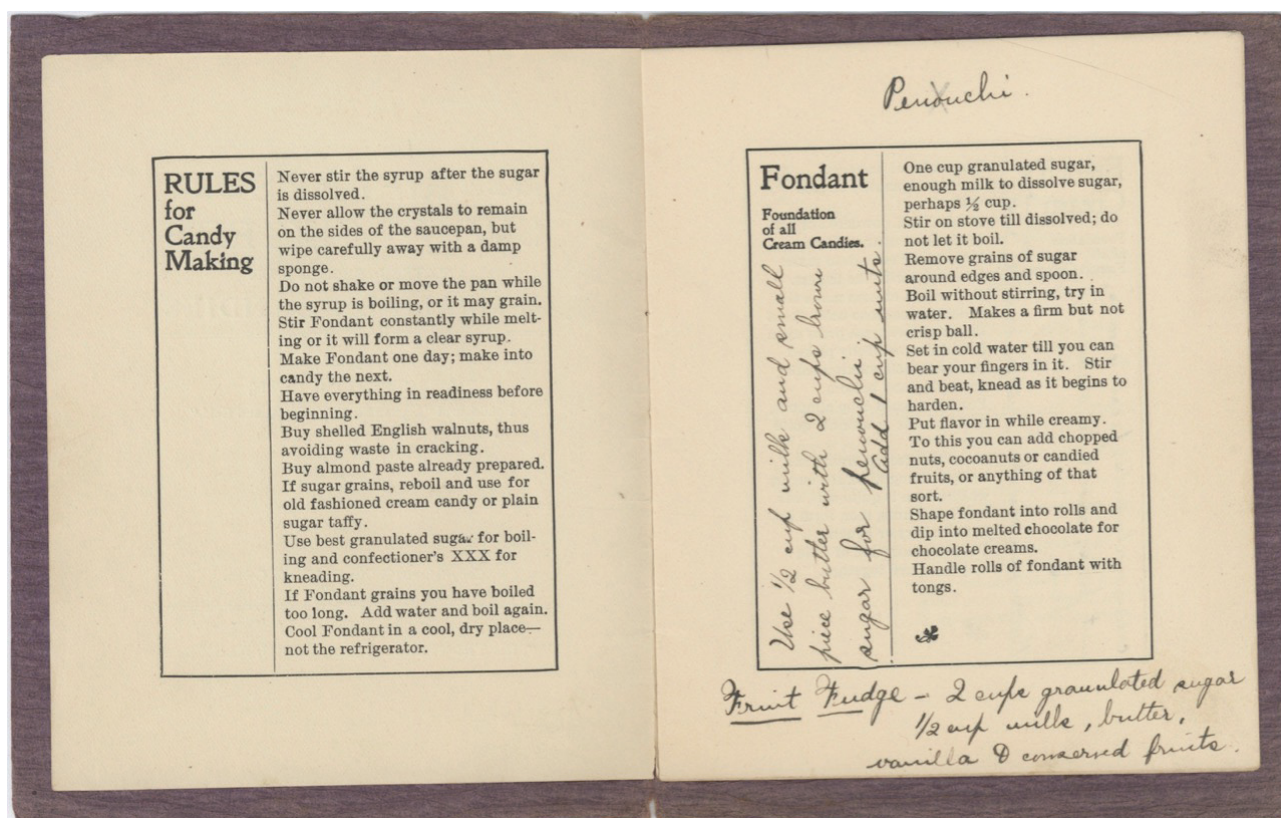 RULES
for
Candy
Making
Never stir the syrup after the sugar
is dissolved.
Never allow the crystals to remain
on the sides of the saucepan, but
wipe carefully away with a damp
sponge.
Do not shake or move the pan while
the syrup is boiling, or it may grain.
Stir Fondant constantly while melt-
ing or it will form a clear syrup.
Make Fondant one day; make into
candy the next.
Have everything in readiness before
beginning.
Buy shelled English walnuts, thus
avoiding waste in cracking.
Buy almond paste already prepared.
If sugar grains, reboil and use for
old fashioned cream candy or plain
sugar taffy.
Use best granulated sugar for boil-
ing and confectioner's XXX for
kneading.
If Fondant grains you have boiled
too long. Add water and boil again.
Cool Fondant in a cool, dry place—
not the refrigerator.
Penouchi.
Fondant
Foundation
of all
Cream Candies.
Use 1/2 cup milk and small
piece butter with 2 cups brown
sugar for penouchi.
Add 1 cup nuts.
One cup granulated sugar,
enough milk to dissolve sugar,
perhaps ½ cup.
Stir on stove till dissolved; do
not let it boil.
Remove grains of sugar
around edges and spoon.
Boil without stirring, try in
water. Makes a firm but not
crisp ball.
Set in cold water till you can
bear your fingers in it. Stir
and beat, knead as it begins to
harden.
Put flavor in while creamy.
To this you can add chopped
nuts, cocoanuts or candied
fruits, or anything of that
sort.
Shape fondant into rolls and
dip into melted chocolate for
chocolate creams.
Handle rolls of fondant with
tongs.
Fruit Fudge - 2 cups granulated sugar
1/2 cup milk, butter,
vanilla & conserved fruits.